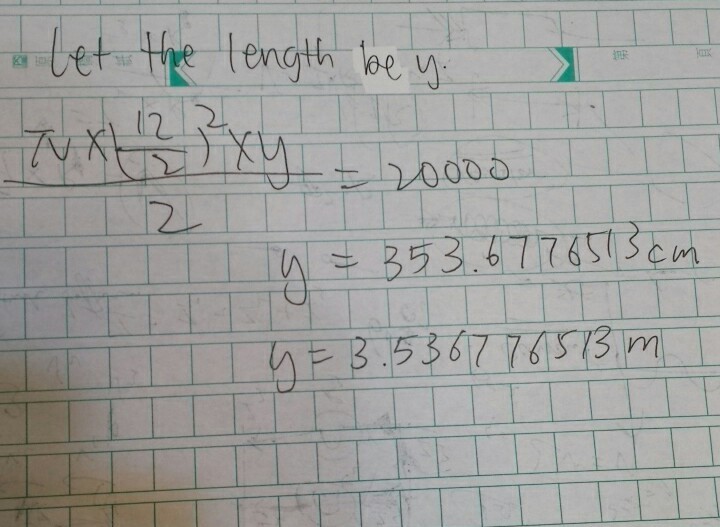 Let the length be y.
\frac{π×(\frac{12}{2})^2×y}{2} = 20000
y = 353.6776513 cm
y = 3.536776513 m